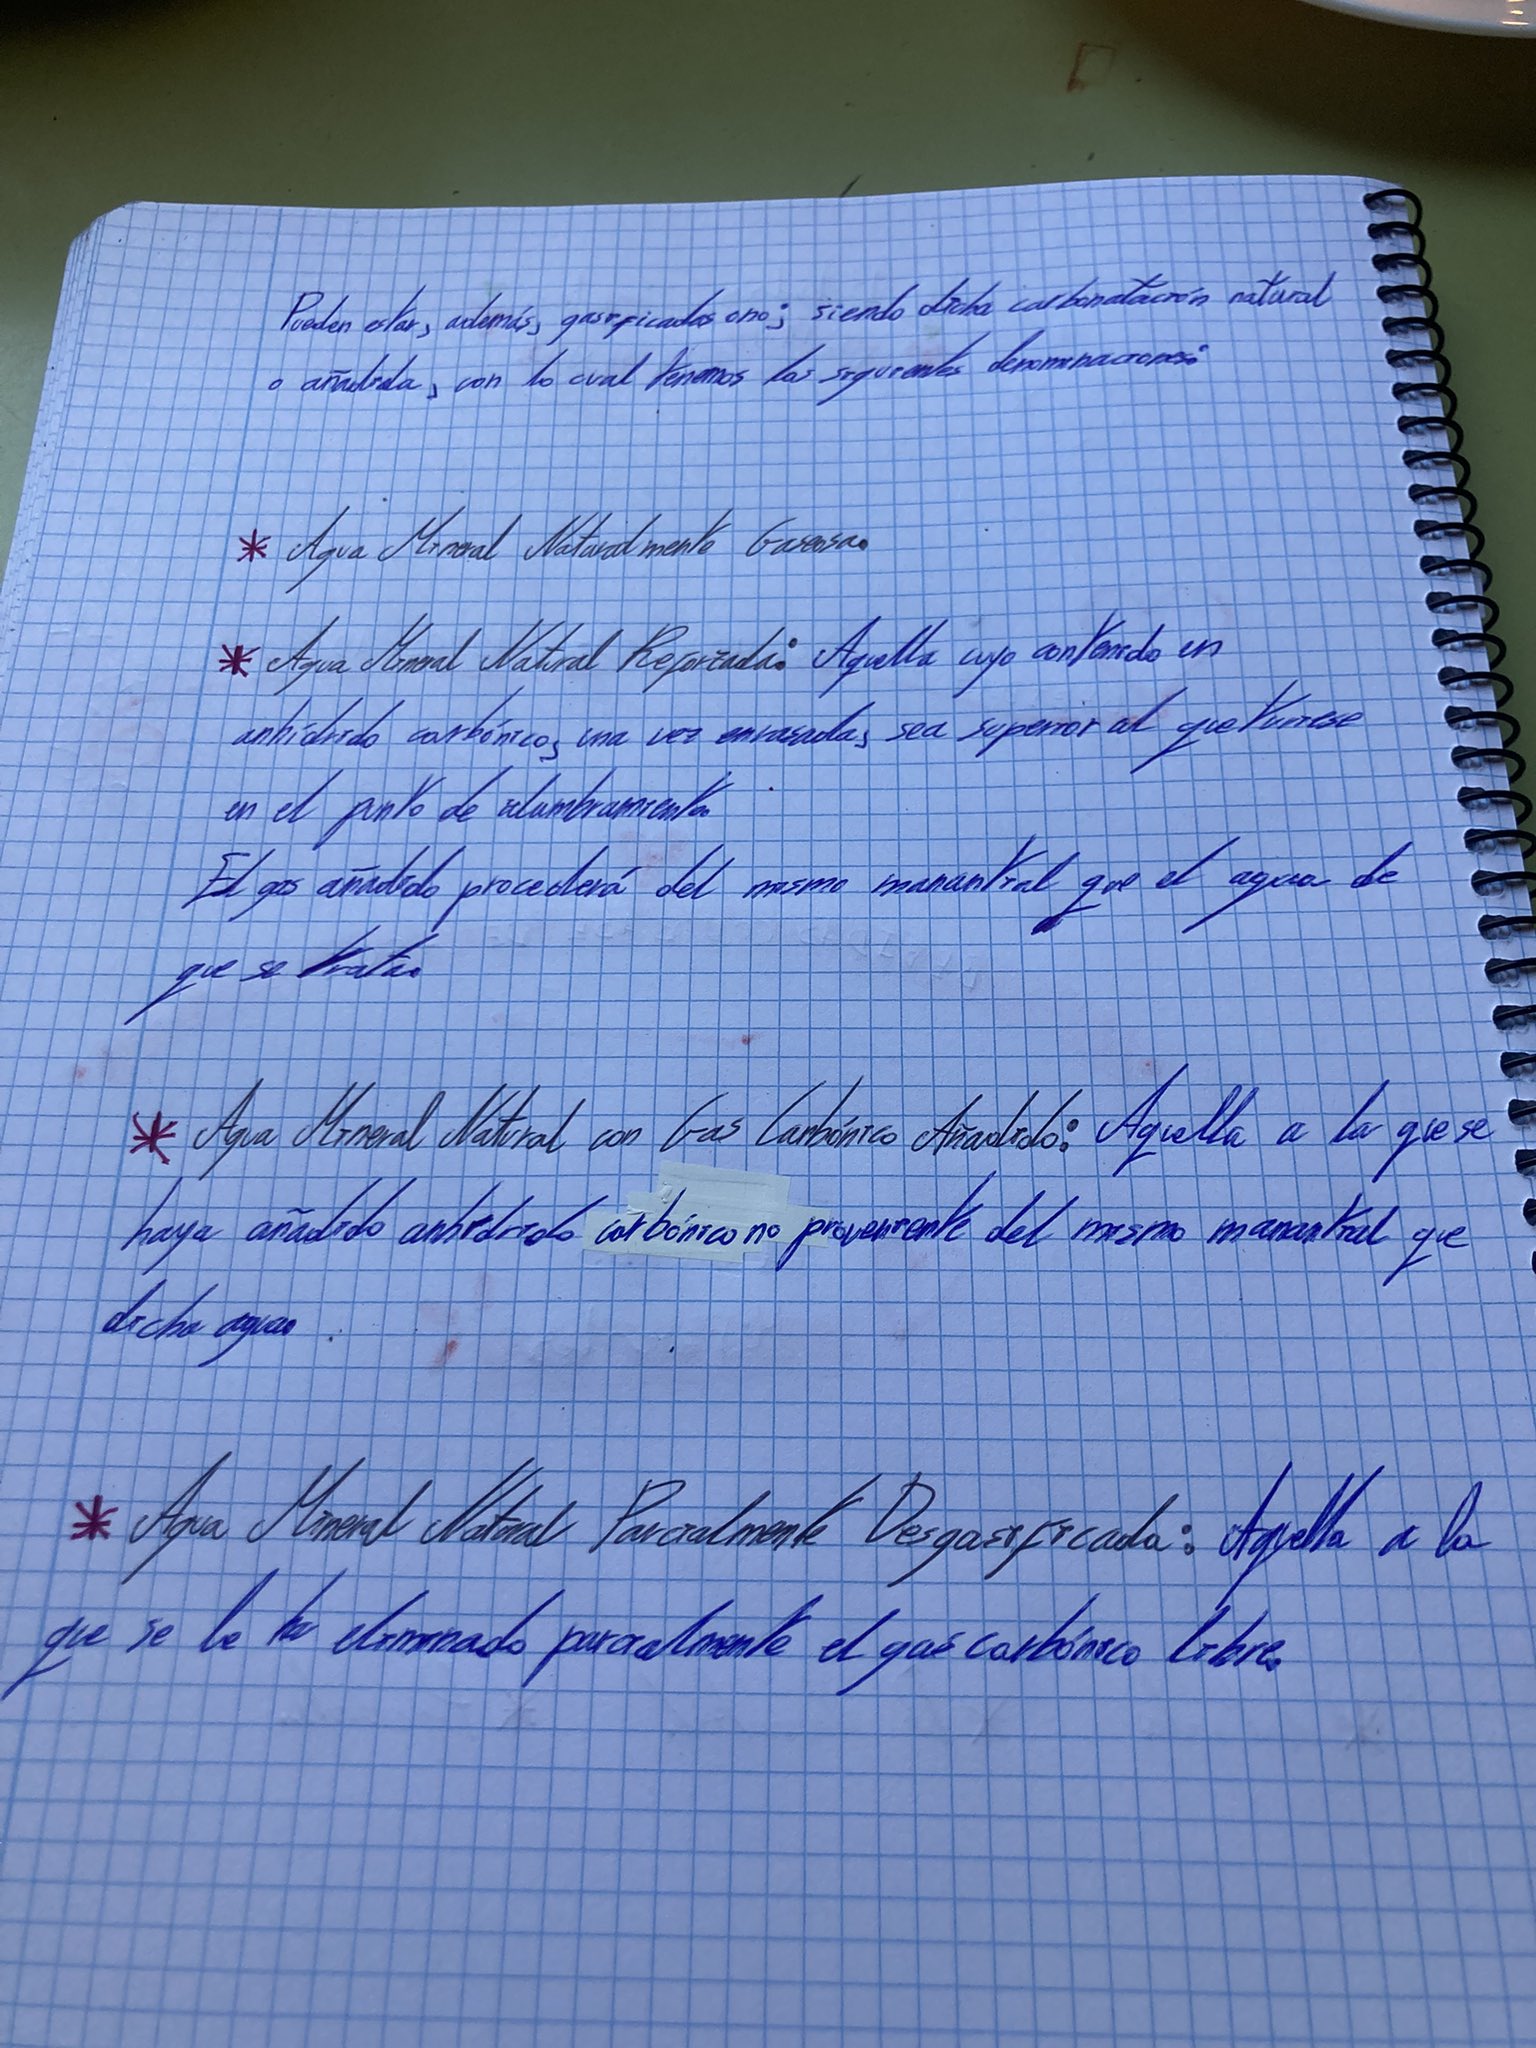 Pueden estar, además, gasificadas o no; siendo dicha carbonatación natural
o añadida, con lo cual tenemos las siguientes denominaciones:
* Agua Mineral Naturalmente Gaseosa.
* Agua Mineral Natural Reforzada: Aquella cuyo contenido en
anhídrido carbónico, una vez envasada, sea superior al que tuviese
en el punto de alumbramiento.
El gas añadido procederá del mismo manantial que el agua de
que se trata.
* Agua Mineral Natural con Gas Carbónico Añadido: Aquella a la que se
haya añadido anhídrido carbónico no proveniente del mismo manantial que
dicha agua.
* Agua Mineral Natural Parcialmente Desgasificada: Aquella a la
que se le ha eliminado parcialmente el gas carbónico libre.